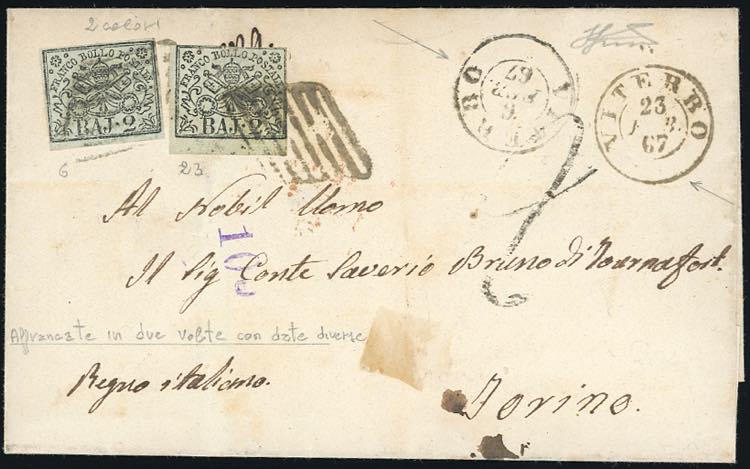 2 colori
FRANCO BOLLO POSTALE
BAJ·2
FRANCO BOLLO POSTALE
BAJ·2
6
23
VITERBO
67
VITERBO
23
67
2
Al Nobil Uomo
Il Sig Conte Saverio Bruno di Tournafort.
109
Affrancate in due volte con date diverse
Regno italiano.
Torino.